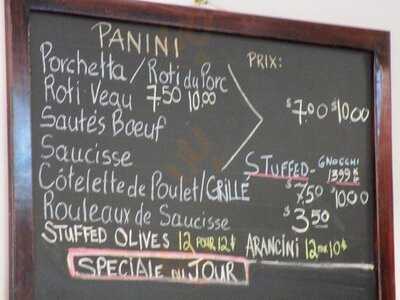 PANINI
PRIX:
Porchetta / Roti du Porc
Roti Veau 7.50 10.00
$7.00 $10.00
Sautés Bœuf
Saucisse
STUFFED - GNOCCHI
Côtelette de Poulet/GRILLÉ
$7.50 $10.00
Rouleaux de Saucisse
$3.50
STUFFED OLIVES 12 POUR 12$ ARANCINI
SPECIALE DU JOUR